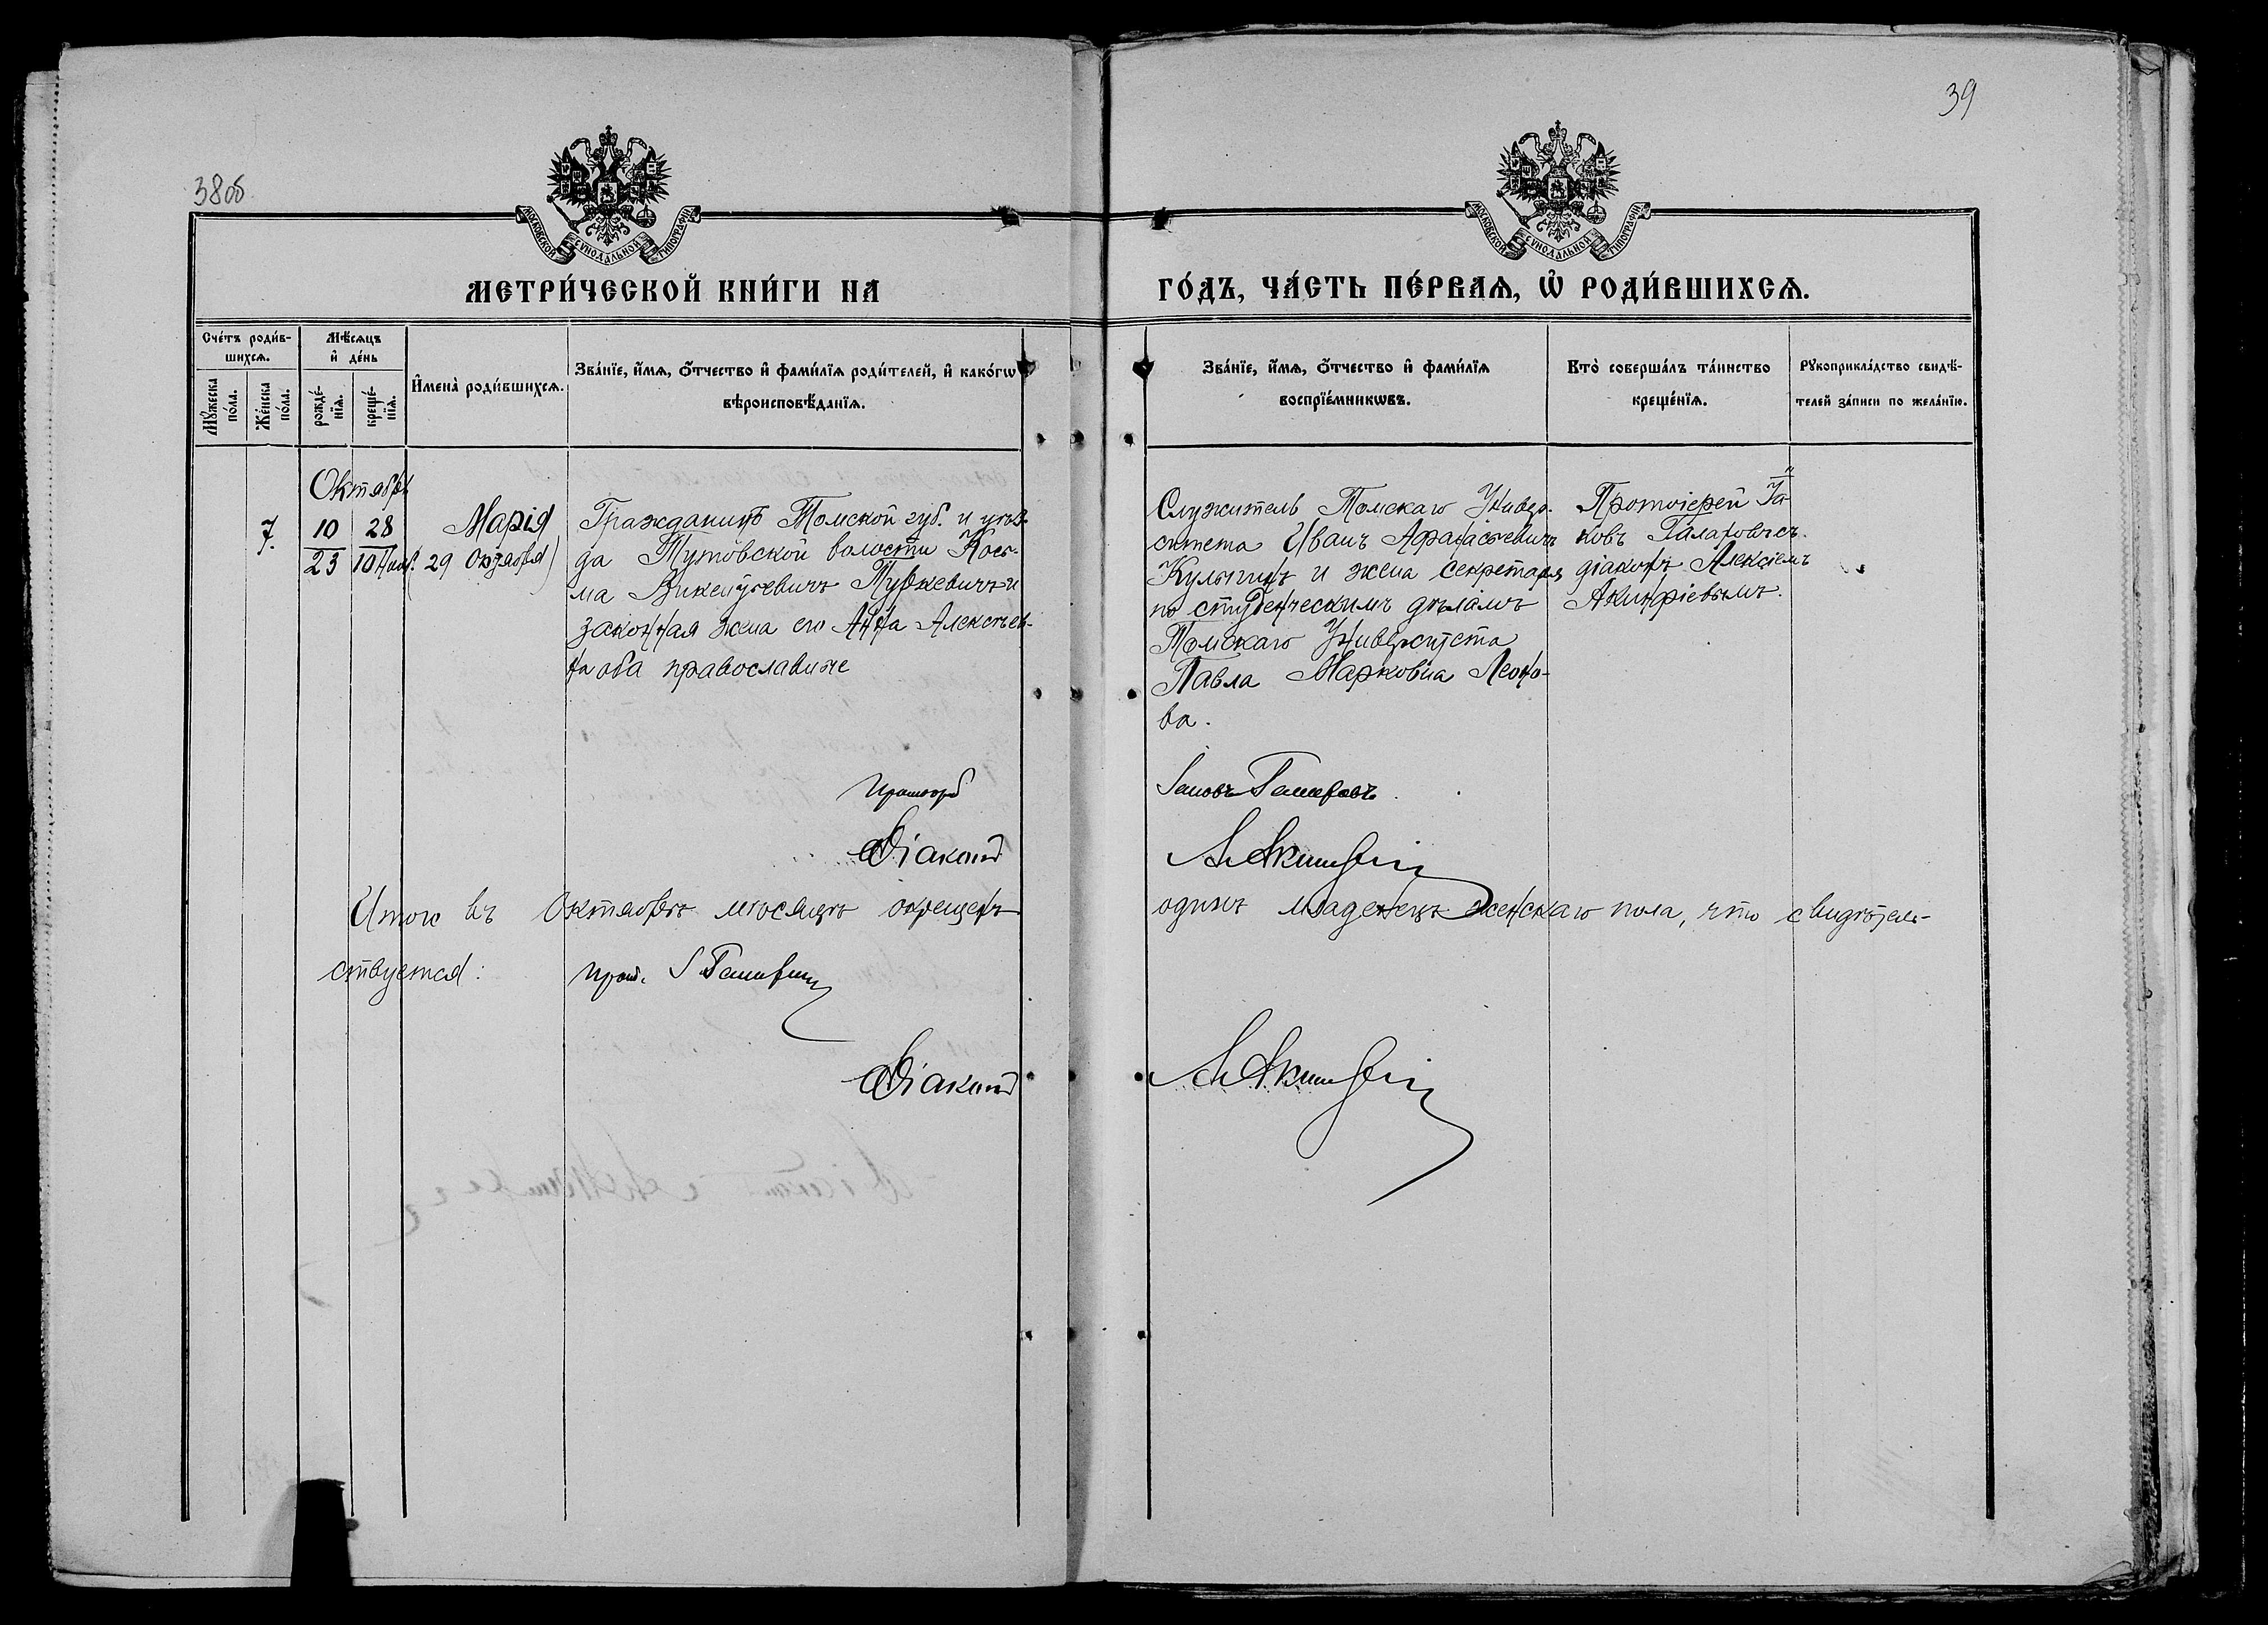 39
38об
МОСКОВСКОЙ СѴНОДАЛЬНОЙ ТИПОГРАФІИ
МОСКОВСКОЙ СѴНОДАЛЬНОЙ ТИПОГРАФІИ
МЕТРИ́ЧЕСКОЙ КНИ́ГИ НА
ГО́ДЪ, ЧА́СТЬ ПЕ́РВАѦ, Ѡ҆ РОДИ́ВШИХСѦ.
Сче́тъ роди́в-
шихсѧ.
Мꙋ́жеска по́ла.
Же́нска по́ла.
Мѣ́сѧцъ
и҆ де́нь
рожде́-
нїѧ.
креще́-
нїѧ.
И҆мена̀ роди́вшихсѧ.
Зва́нїе, и҆́мѧ, ѻ҆́тчество и҆ фами́лїѧ роди́телей, и҆ како́гѡ
вѣроисповѣ́данїѧ.
Зва́нїе, и҆́мѧ, ѻ҆́тчество и҆ фами́лїѧ
воспрїе́мникѡвъ.
Кто̀ соверша́лъ та́инство
креще́нїѧ.
Рꙋкоприкла́дство свидѣ́-
телей за́писи по жела́нїю.
Октябрь
7.
10
23
28
10 Нояб.
Марія
(29 Октября)
Гражданинъ Томской губ. и уѣз-
да Тутовской волости Косъ-
ма Викентьевичъ Пуркевичъ и
законная жена его Анна Алексѣев-
на оба православные
Служитель Томскаго Универ-
ситета Иванъ Афанасьевичъ
Кулыгинъ и жена секретаря
по студенческимъ дѣламъ
Томскаго Университета
Павла Марковна Леоно-
ва.
Протоіерей Іа-
ковъ Галаховъ съ
діакономъ Алексіемъ
Акинфіевымъ.
Протоіерей
Іаковъ Галаховъ.
Діаконъ
А. Акинфіевъ
Итого въ Октябрѣ мѣсяцѣ окрещенъ
одинъ младенецъ женскаго пола, что свидѣтель-
ствуется:
Прот. І. Галаховъ
Діаконъ
А. Акинфіевъ